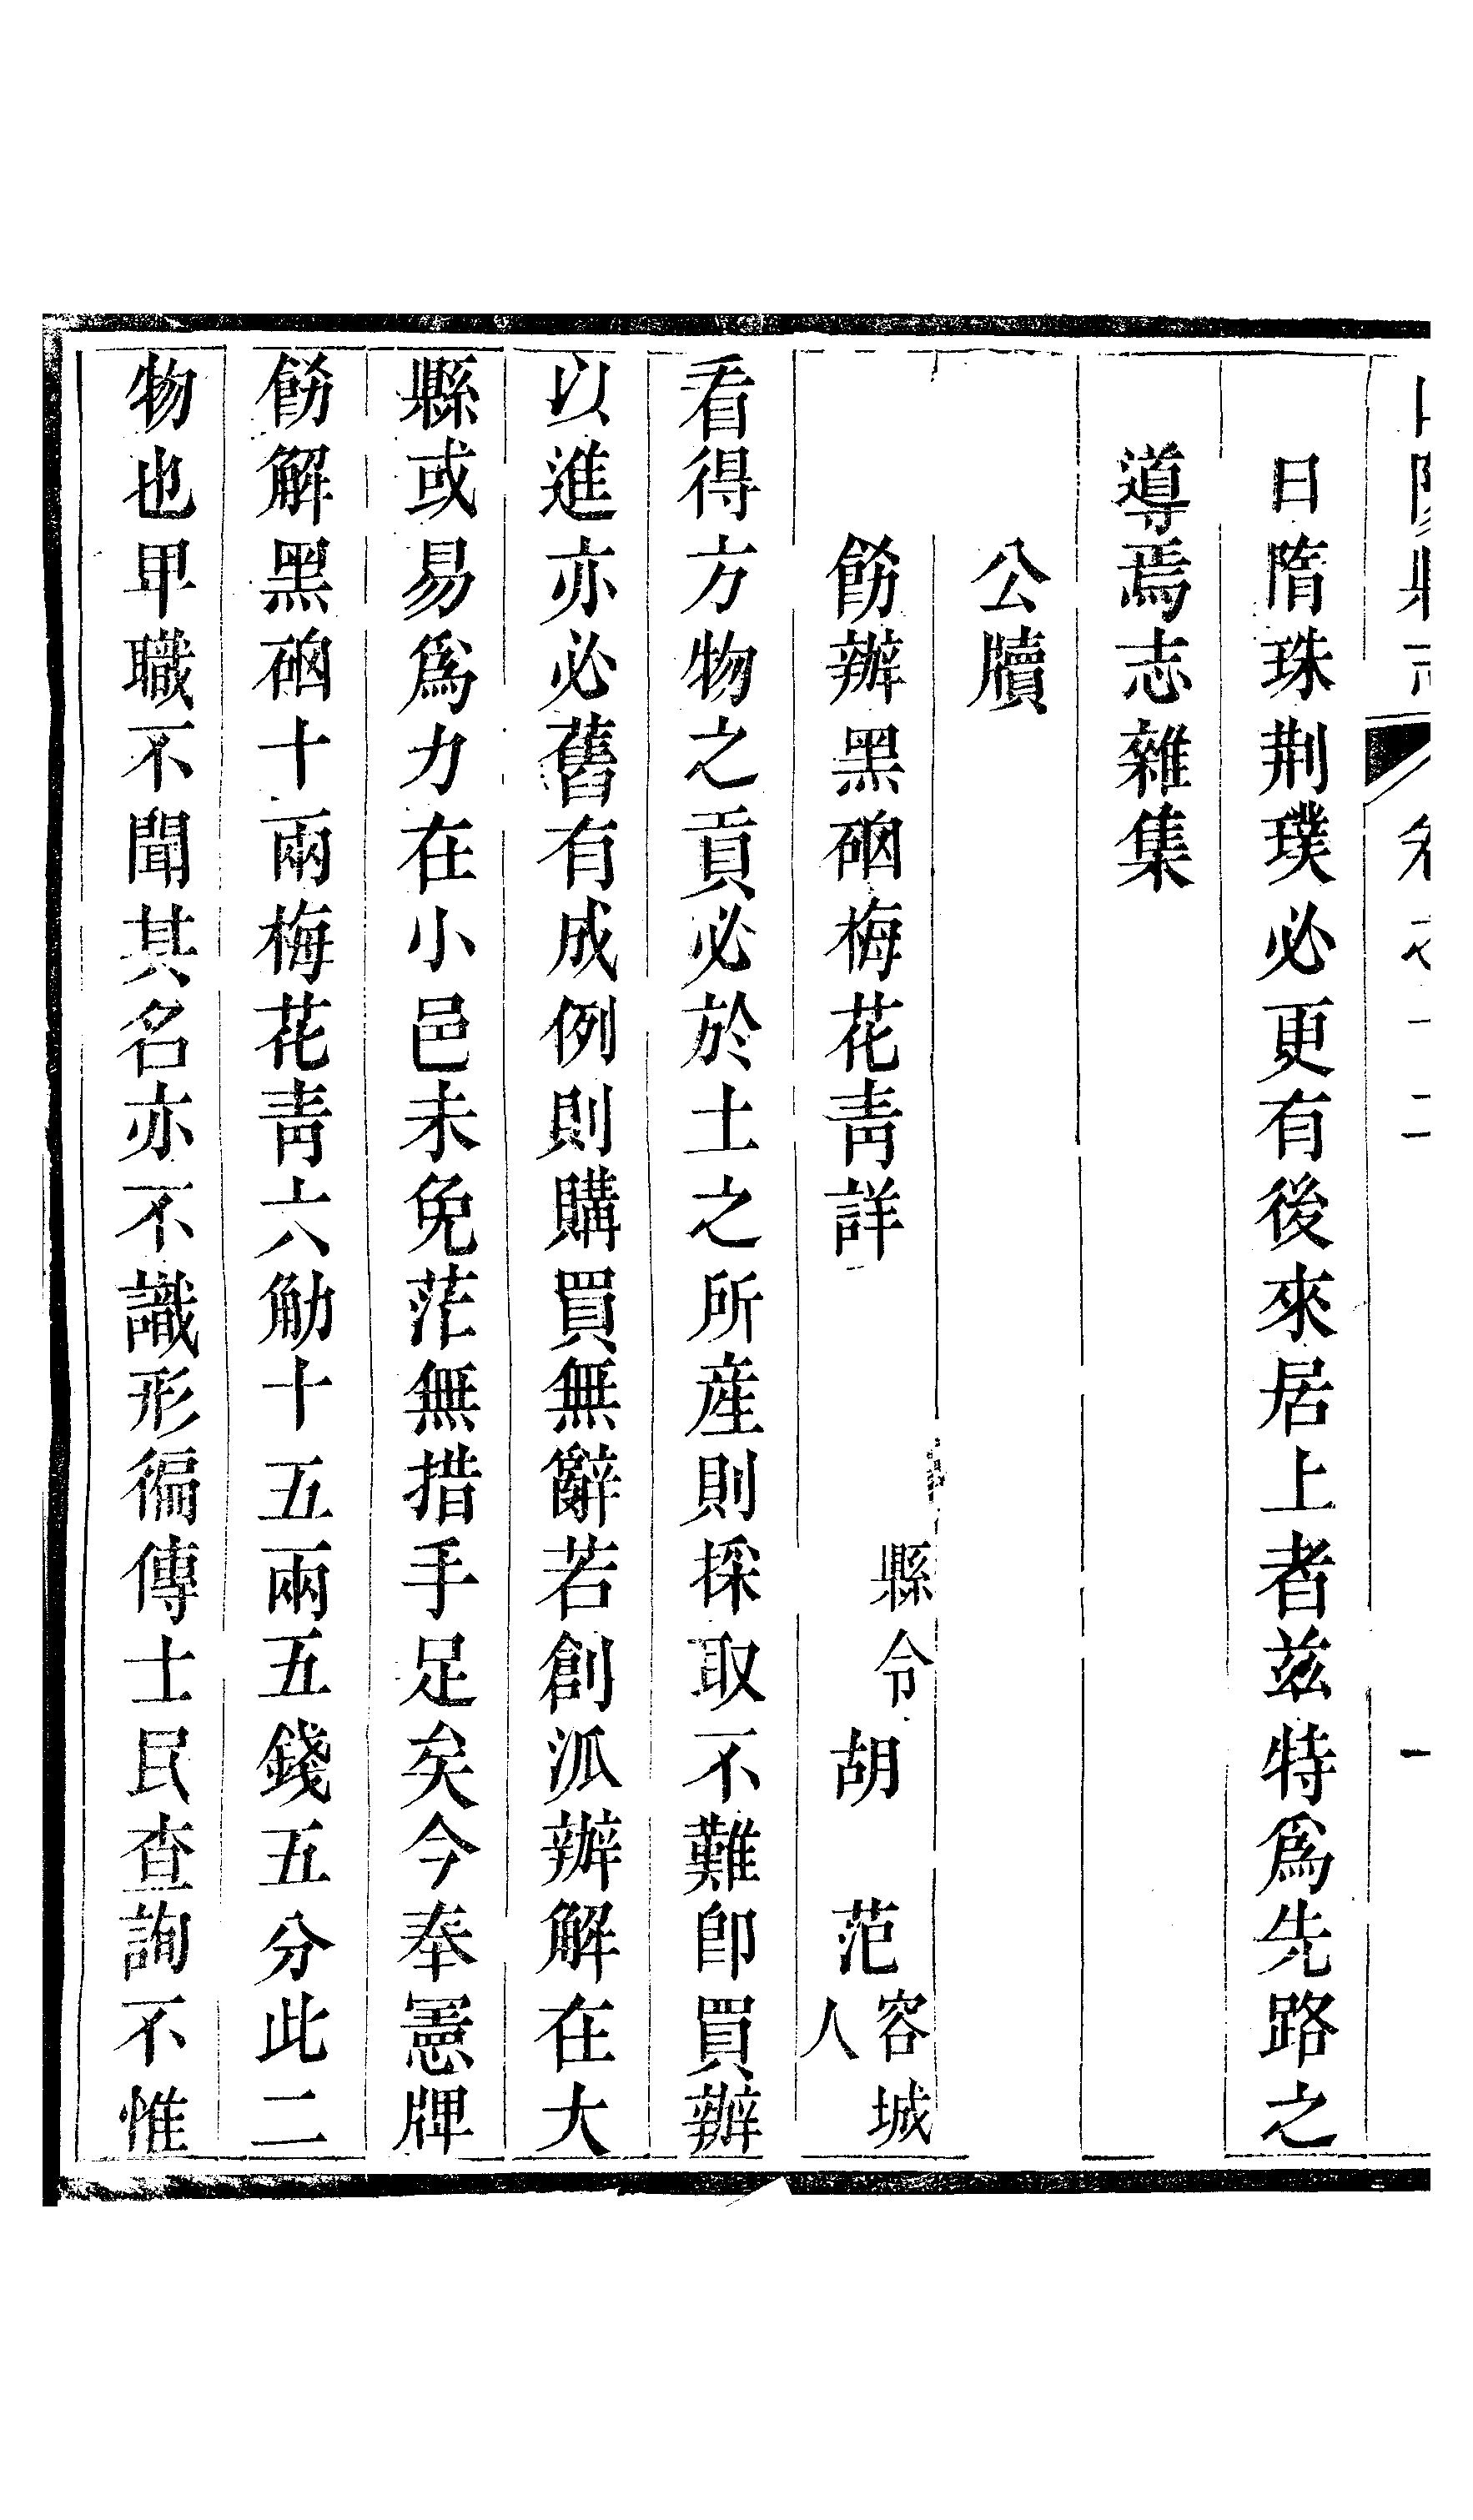 日隋珠荆璞必更有後來居上者兹特爲先路之
導焉志雜集
公牘
飭辦黑硇梅花靑詳 縣令胡范容城人
看得方物之貢必於土之所產則採取不難即買辦
以進亦必舊有成例則購買無辭若創派辦解在大
縣或易爲力在小邑未免茫無措手足矣今奉憲牌
飭解黑硇十兩梅花靑六觔十五兩五錢五分此二
物也卑職不聞其名亦不識形徧傳士民查詢不惟